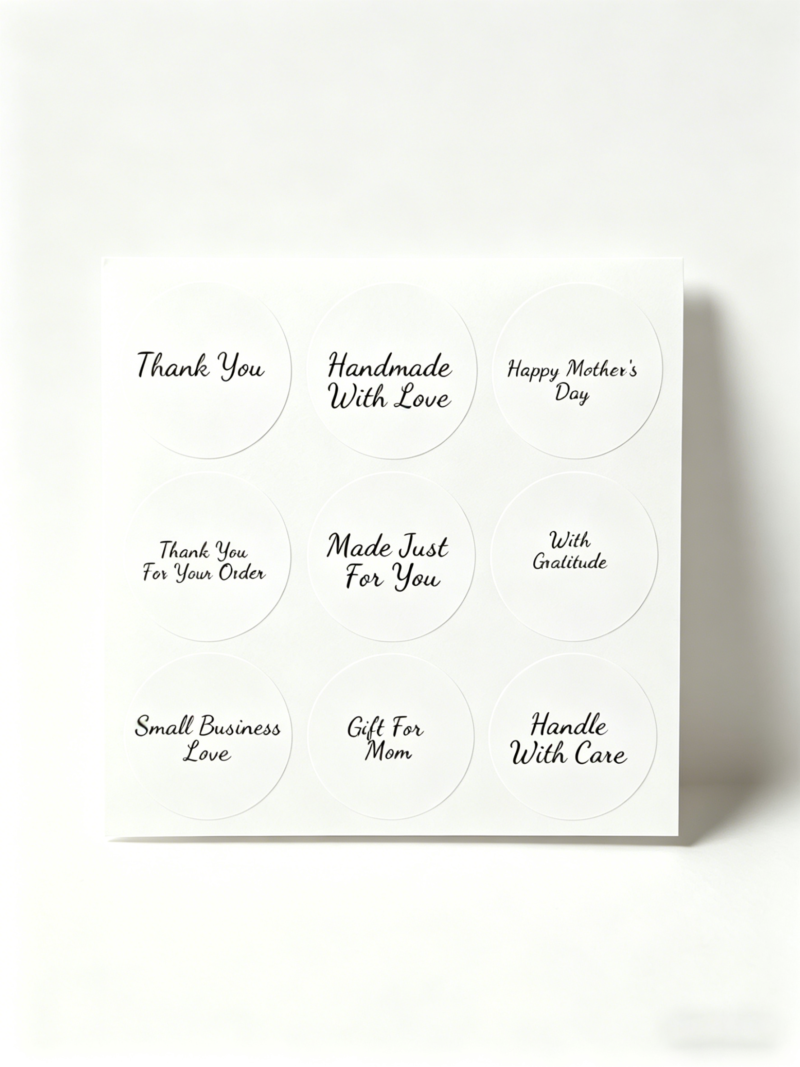 Thank You
Handmade
With Love
Happy Mother's
Day
Thank You
For Your Order
Made Just
For You
With
Gratitude
Small Business
Love
Gift For
Mom
Handle
With Care